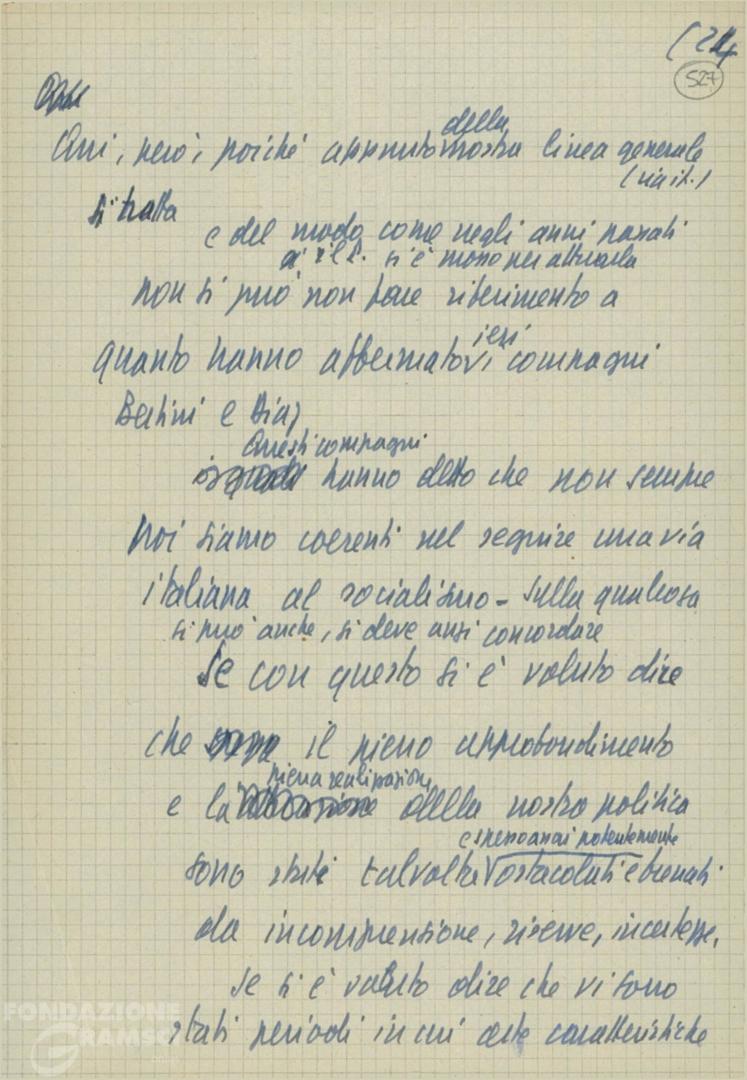 (24
527
Qui, però, poiché appunto della nostra linea generale
(via it.)
si tratta
e del modo come negli anni passati
si è mosso per attuarla
non si può non fare riferimento a
quanto hanno affermato ieri i compagni
Bertini e Diaz
Questi compagni
hanno detto che non sempre
noi siamo coerenti nel seguire una via
italiana al socialismo - Sulla qualcosa
si può anche, si deve anzi concordare
Se con questo si è voluto dire
che il pieno approfondimento
piena realizzazione
e la della nostra politica
e spesso assai potentemente
sono state talvolta ostacolati e frenati
da incomprensione, riserve, incertezze,
se si è voluto dire che vi sono
stati periodi in cui certe caratteristiche
FONDAZIONE
GRAMSCI